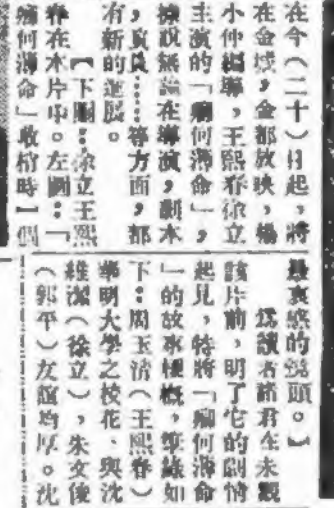 在今(二十)日起,將
在金城,金都放映,楊
小仲編導,王熙春徐立
主演的「卿何薄命」,
據說無論在導演,劇本
,演員……等方面,都
有新的進展。
【下圖:徐立王熙
春在本片中。左圖:「
卿何薄命」收棺時一個
最哀感的鏡頭。】
爲讀者諸君在未觀
該片前,明了它的劇情
起見,特將「卿何薄命
」的故事梗概,錄如
下:周玉清(王熙春)
華明大學之校花、與沈
維潔(徐立),朱文俊
(郭平)友誼均厚。沈